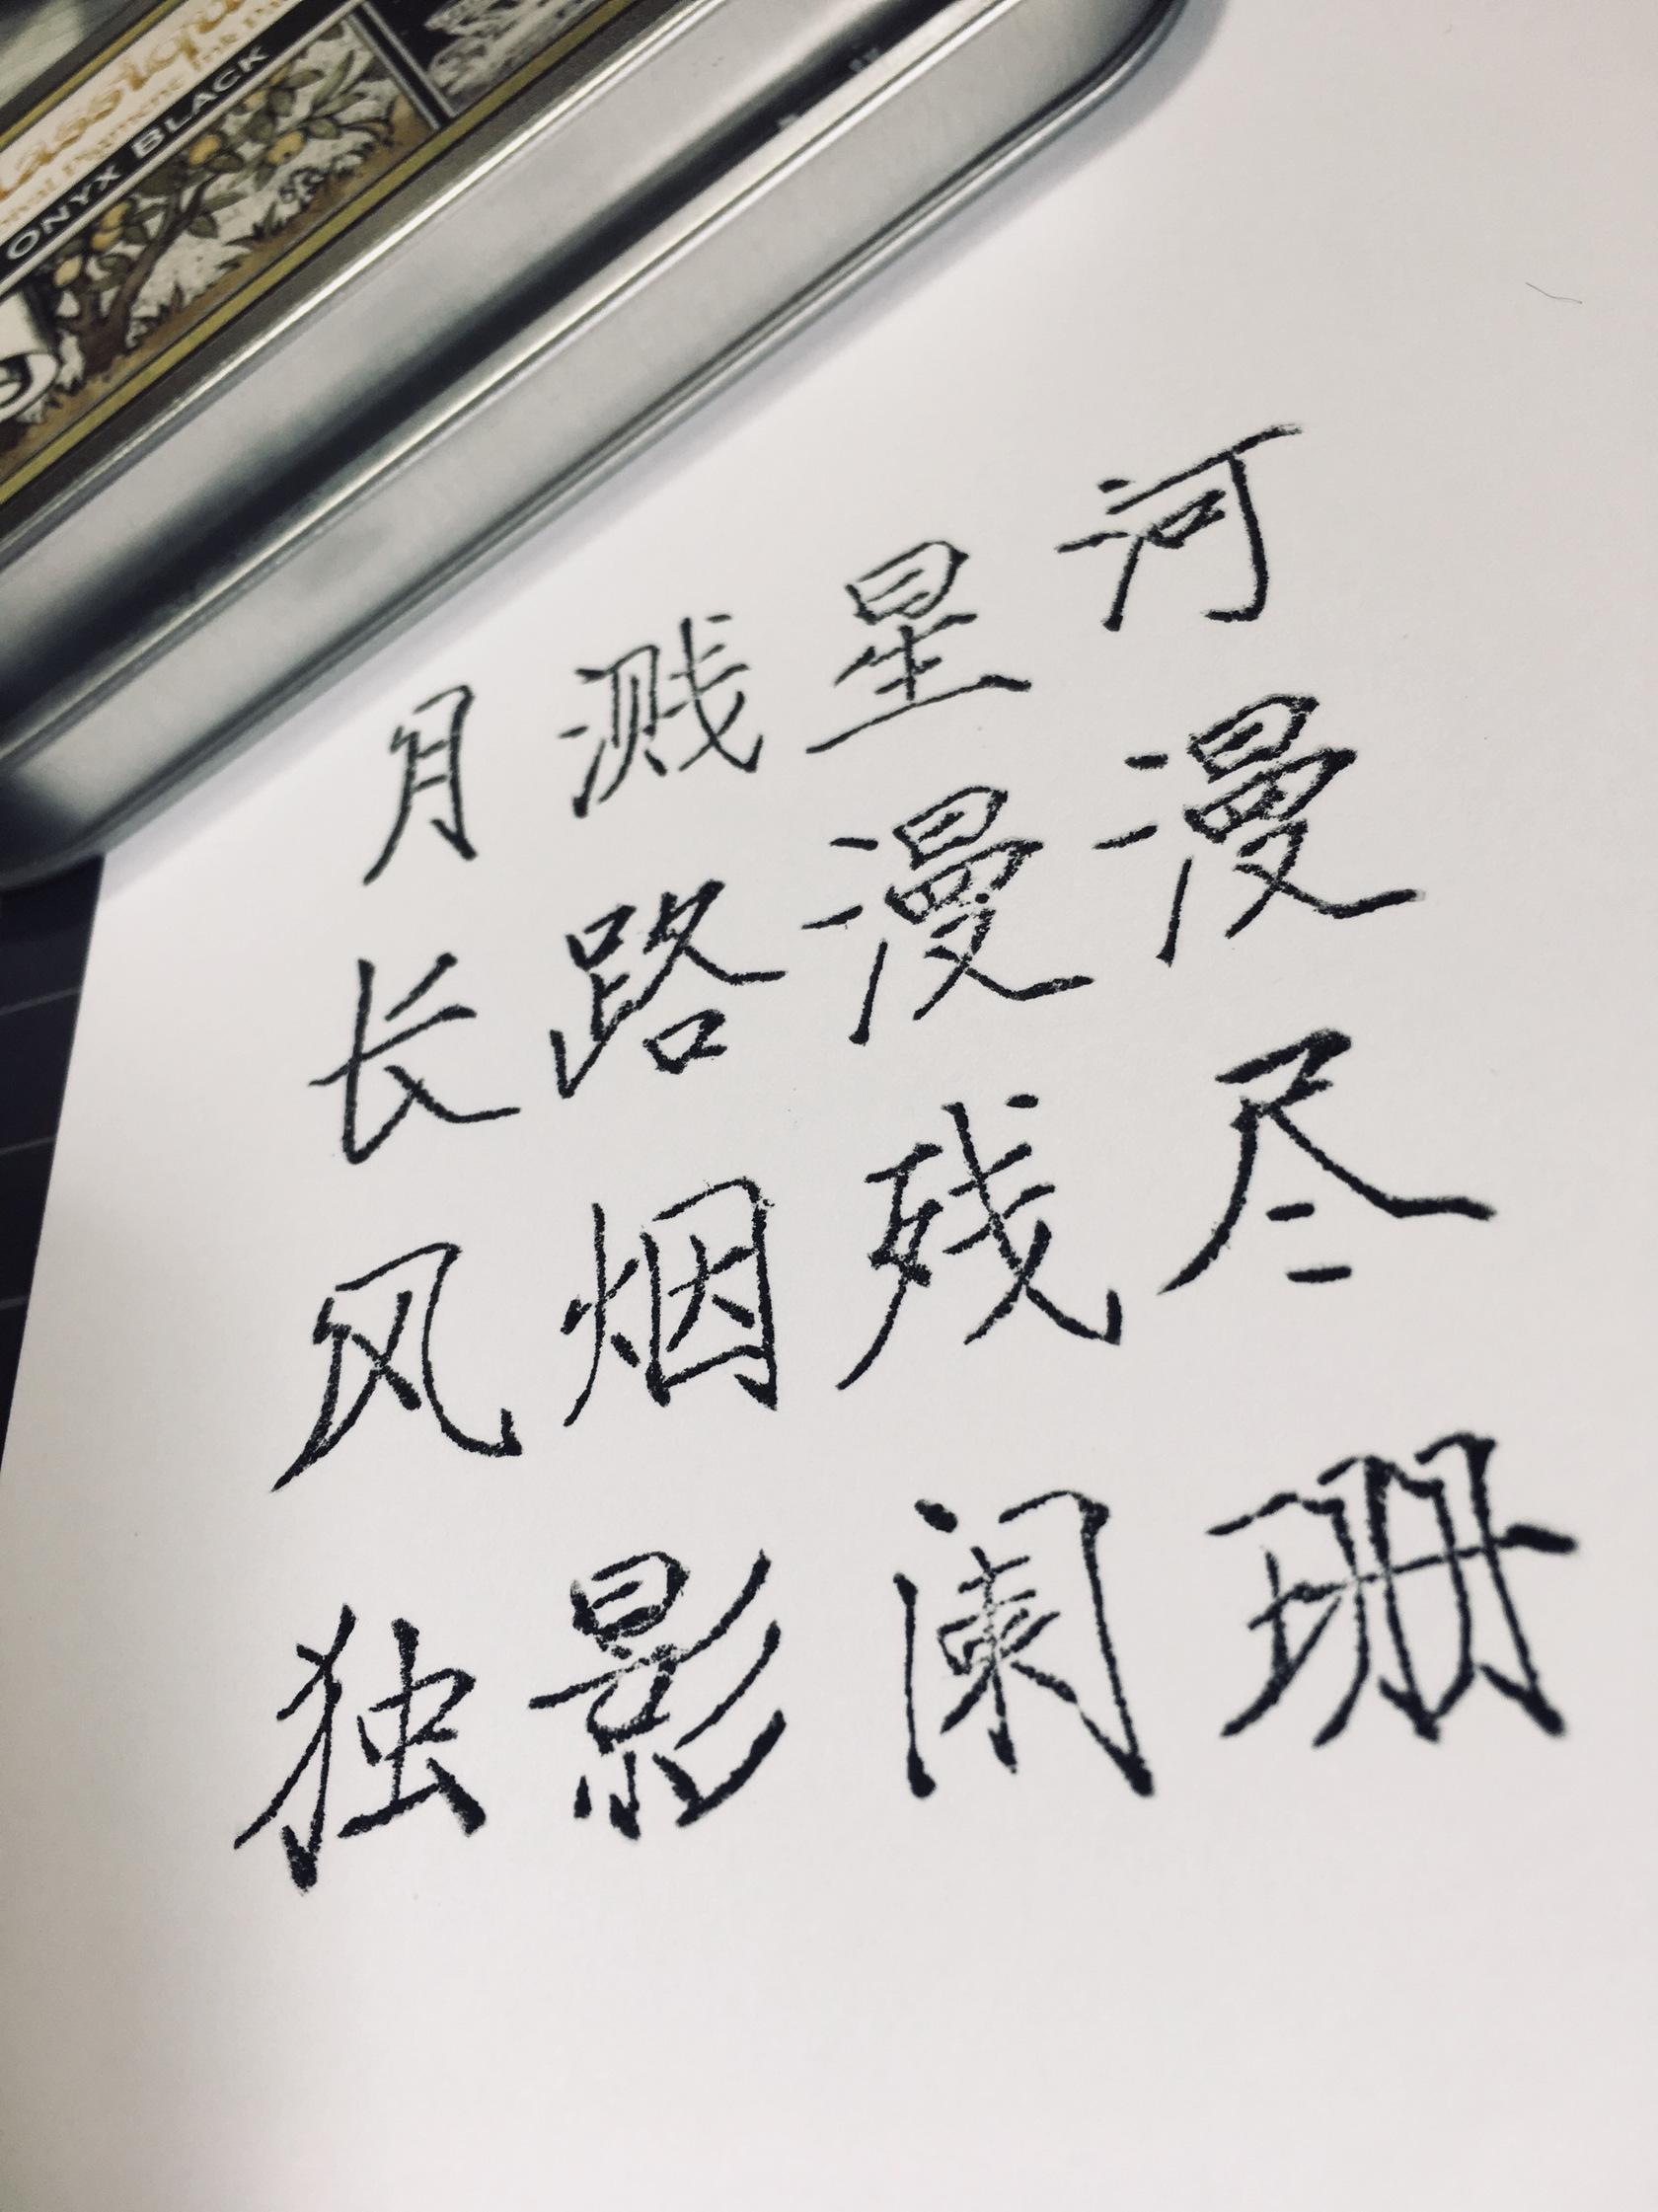 ONYX BLACK
月溅星河
长路漫漫
风烟残尽
独影阑珊